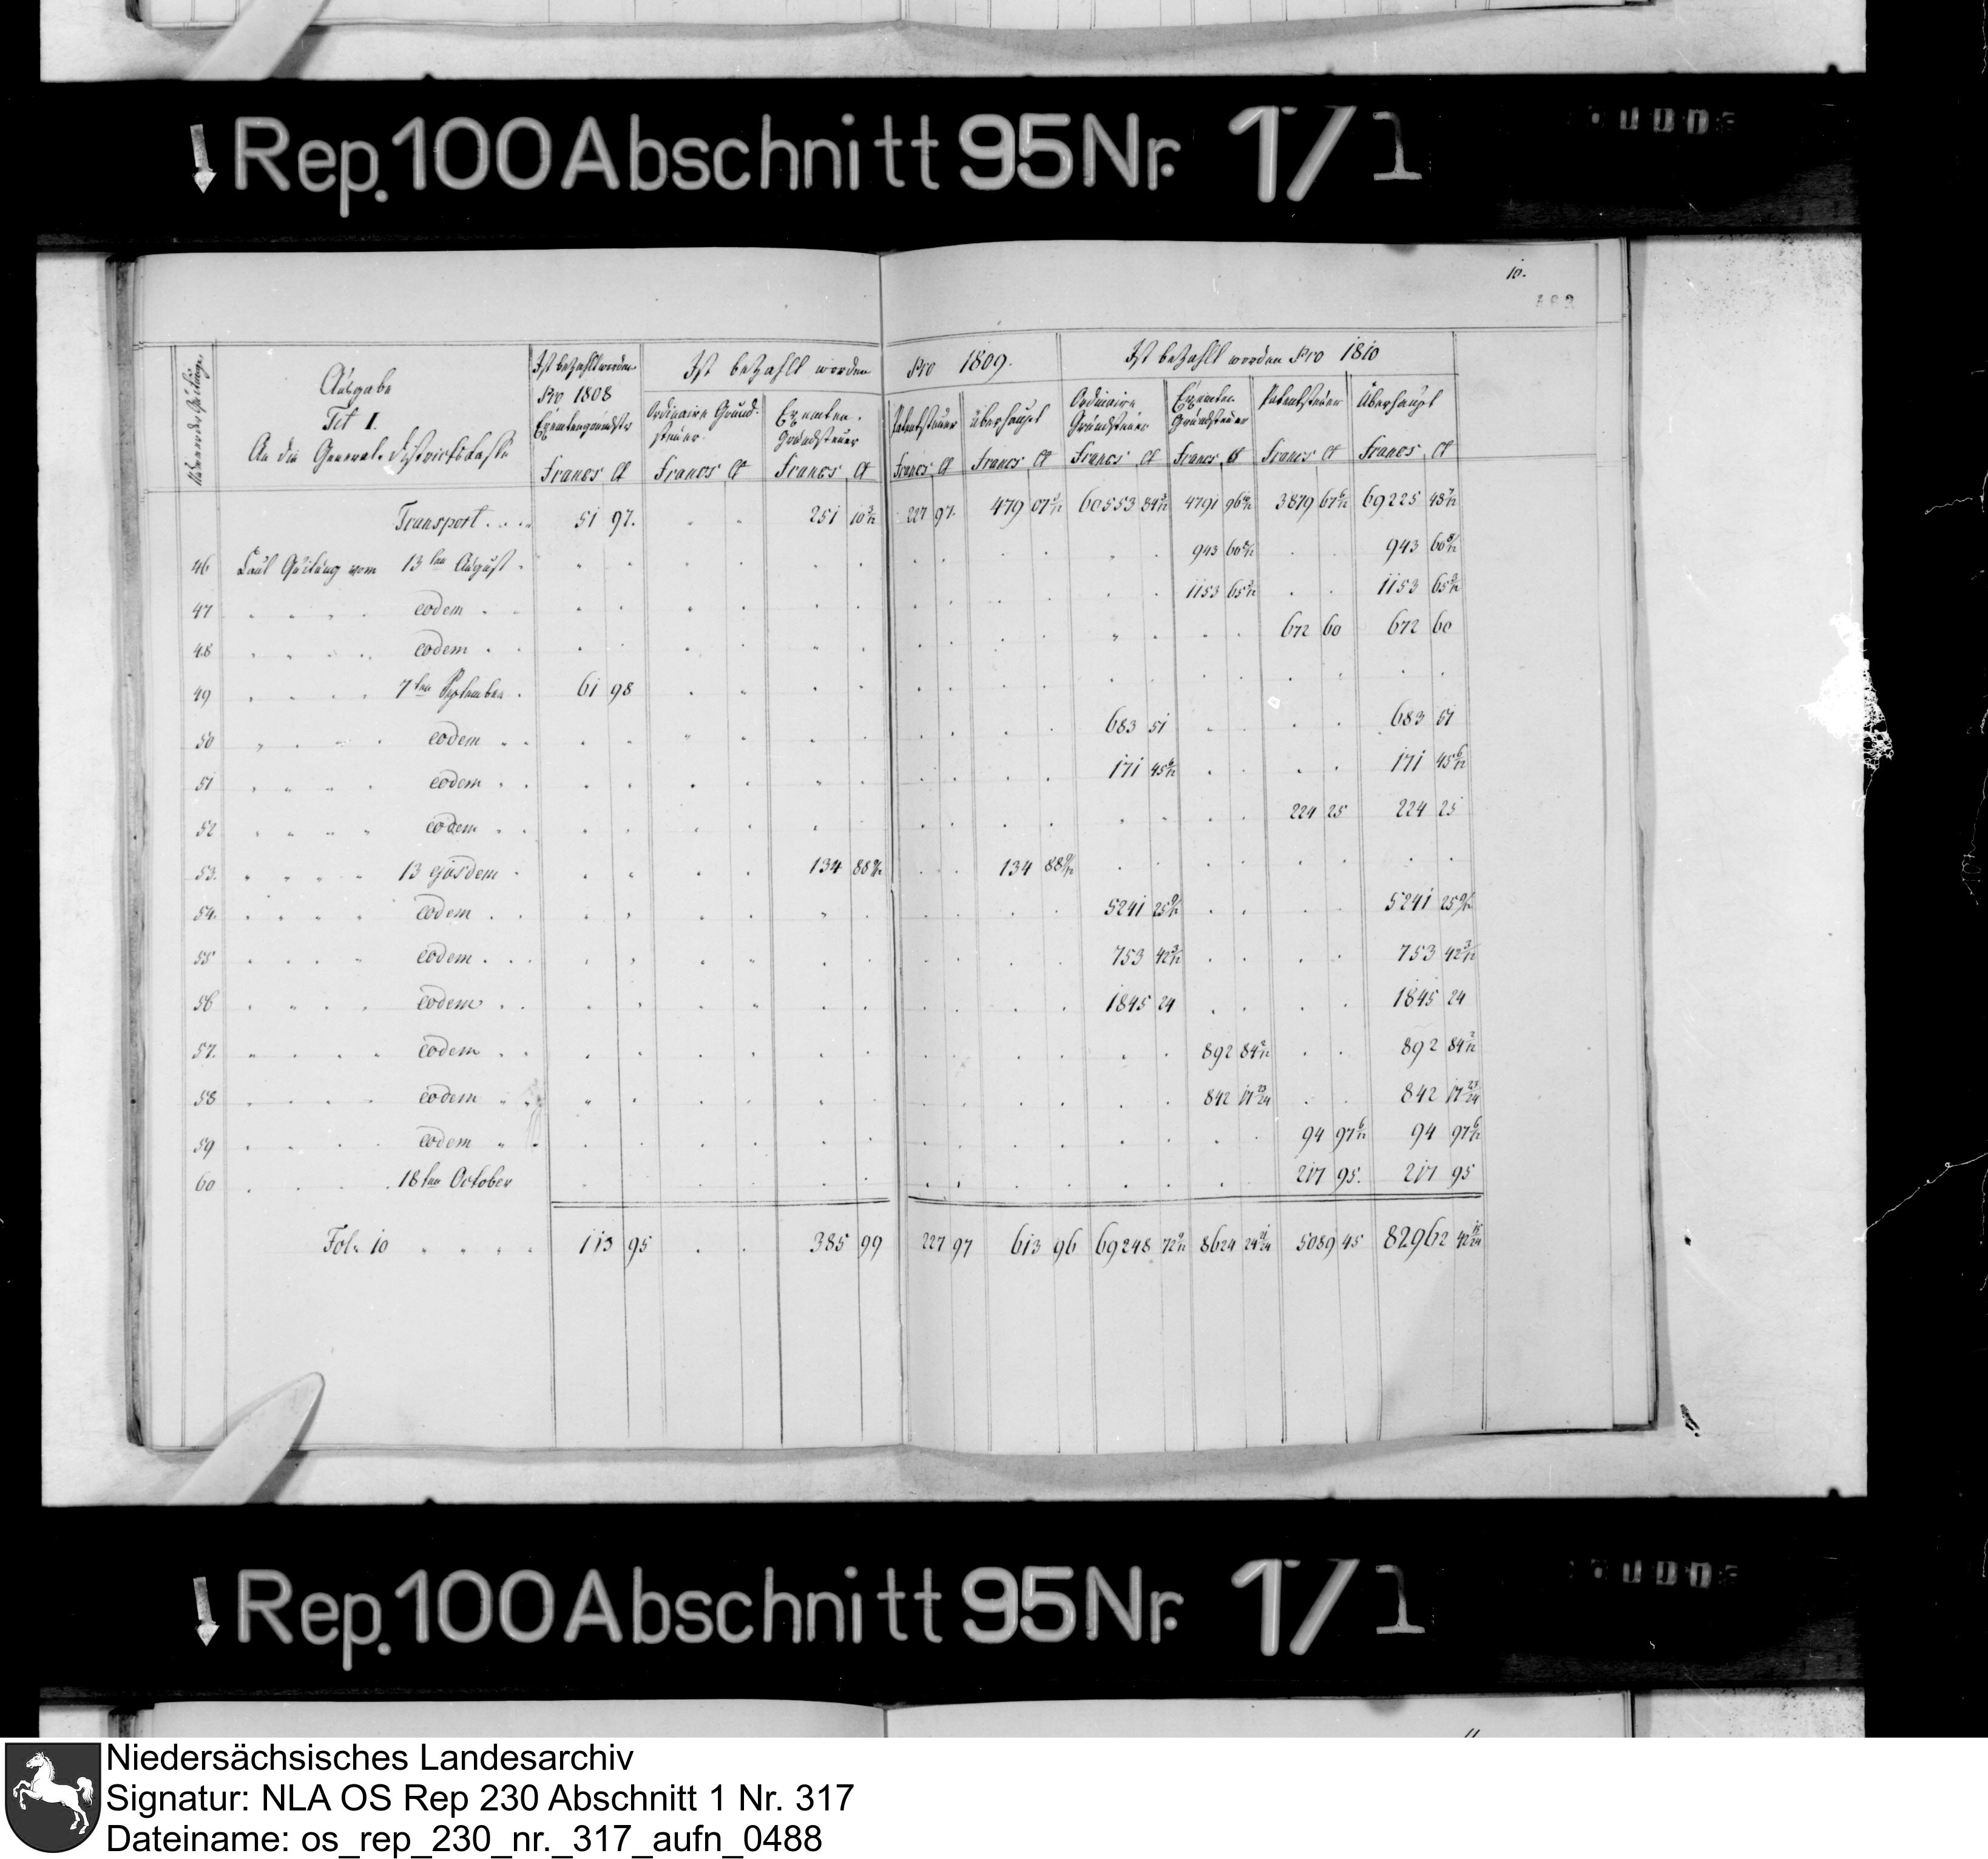 Rep. 100 Abschnitt 95 Nr. 1/1
10.
Ausgabe
Tit I.
An die General-Districtscasse
Ist bezahlt worden
Pro 1808
Ist bezahlt worden Pro 1809.
Ist bezahlt worden Pro 1810
Ordinaire Grundsteuer.
Exemten. Grundsteuer
Patentsteuer
überhaupt
Ordinaire Grundsteuer
Exemten Grundsteuer
Patentsteuer
Überhaupt
Francs Ct Francs Ct Francs Ct Francs Ct Francs Ct Francs Ct Francs Ct Francs Ct Francs Ct
Transport 51 97. 251 10 3/12 227 97. 479 07 3/12 60553 84 4791 96 3879 67 6/12 69225 48
46 Laut Quitung vom 13ten August 943 60 943 60
47 eodem 1153 65 1153 65
48 eodem 672 60 672 60
49 7ten September 61 98
50 eodem 683 51 683 51
51 eodem 171 45 6/12 171 45 6/12
52 eodem 224 25 224 25
53. 13 ejusdem 134 88 9/12 134 88 9/12
54. eodem 5241 25 9/12 5241 25 9/12
55 eodem 753 42 3/12 753 42 3/12
56 eodem 1845 24 1845 24
57. eodem 892 84 2/12 892 84 2/12
58 eodem 842 17 23/24 842 17 23/24
59 eodem 94 97 6/12 94 97 6/12
60 18ten October 217 95. 217 95
Fol. 10 113 95 385 99 227 97 613 96 69248 72 8624 24 5089 45 82962 42
Rep. 100 Abschnitt 95 Nr. 1/1
Niedersächsisches Landesarchiv
Signatur: NLA OS Rep 230 Abschnitt 1 Nr. 317
Dateiname: os_rep_230_nr._317_aufn_0488